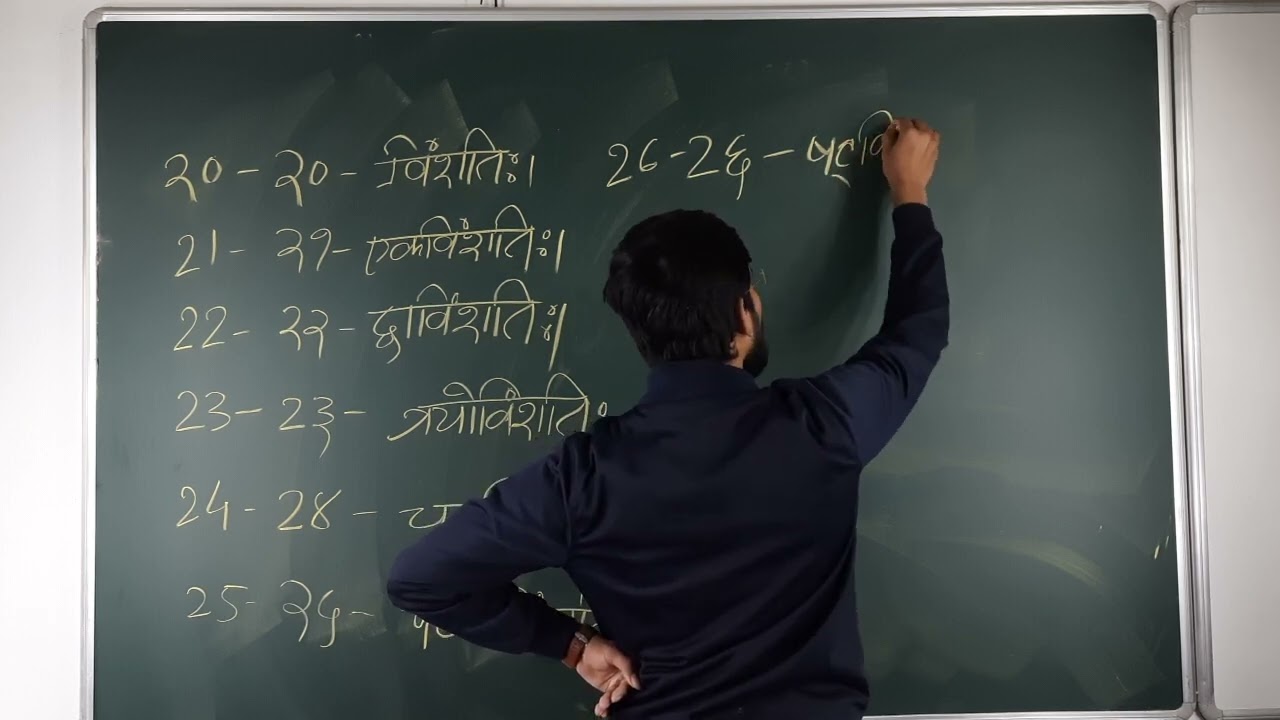 २० - २० - विंशतिः।
21 - २१ - एकविंशतिः।
22 - २२ - द्वाविंशतिः।
23 - २३ - त्रयोविंशतिः
24 - २४ - च
25 - २५ -
26 - २६ - षट्वि